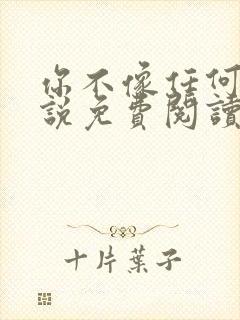 你不像任何
說免費閱讀
十片葉子